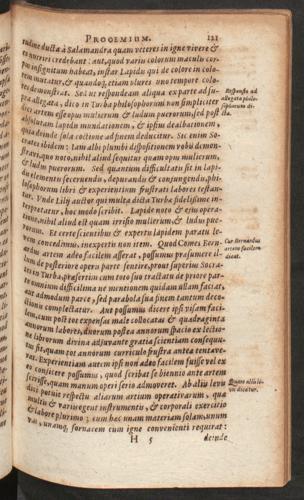 PROOEMIUM. 121
tudine ducta à Salamandra quam veteres in igne vivere &
nutriri credebant: aut, quod varii colorum maculis cor-
pus insignitum habeat, instar Lapidis qui de colore in colo-
rem mutatur, & quandoque, etiam plures uno tempore colo-
res demonstrat. Sed ut respondeam aliqua ex parte ad su-
pra allegata, dico in Turba philosophorum non simpliciter
artem esse opus mulierum & ludum puerorum, sed post
Lapidis mundationem, & ipsius dealbationem
quia deinde sola coctione ad finem deducitur. Sic enim So-
crates ibidem: Iam albi plumbi dispositionem vobis demon-
stravi, quo noto, nihil aliud sequitur quam opus mulierum,
& ludus puerorum. Sed quantum difficultatis sit in lapi-
dis elementis secernendis, depurandis & conjungendo, phi-
losophorum libri & experientium frustrati labores testan-
tur. Unde Lilii auctor qui multa dicta Turbae fidelissime in-
terpretatur, hoc modo scribit. Lapide noto & ejus opera-
nihil aliud est quam irrisio mulierum & ludus pue-
rorum. Et certe scientibus & expertis lapidem paratu le-
vem concedimus, inexpertis non item. Quod Comes Bern-
hardus artem adeo facilem asserat, possumus praesumere il-
lum de posteriore opere parte sentire, prout superius Socra-
tes in Turba, praesertim cum toto suo tractatu de priore par-
te omnium difficilima ne mentionem quidem ullam faciat,
aut admodum parce, sed parabola sua finem tantum deco-
ctionis complectatur. Aut possumus dicere ipsi visam faci-
lem, cum post tot expensas male collocatas & quadraginta
annorum labores, duorum postea annorum spacio ex lectio-
ne librorum divina adjuvante gratia scientiam consequu-
tus sit, quam tot annorum curriculo frustra antea tentave-
rat. Experientiam autem ipsi non adeo facilem fuisse vel ex
eo conjicere possumus, quod scribat se biennio ante artem
scivisse, quam manum operi serio admoveret. Ab aliis levis
dici potuit respectu aliarum artium operativarum, quae
multis & variis eget instrumentis, & corporali exercitio
& labore plurimo; cum haec unam materiam solam, unum
vas, unamque fornacem cum igne convenienti requirat:
H 5 deinde
Responsio ad
allegata philo-
sophorum di-
cta.
Cur Bernardus
artem facilem
dicat.
Quare ab aliis le-
vis dicatur.